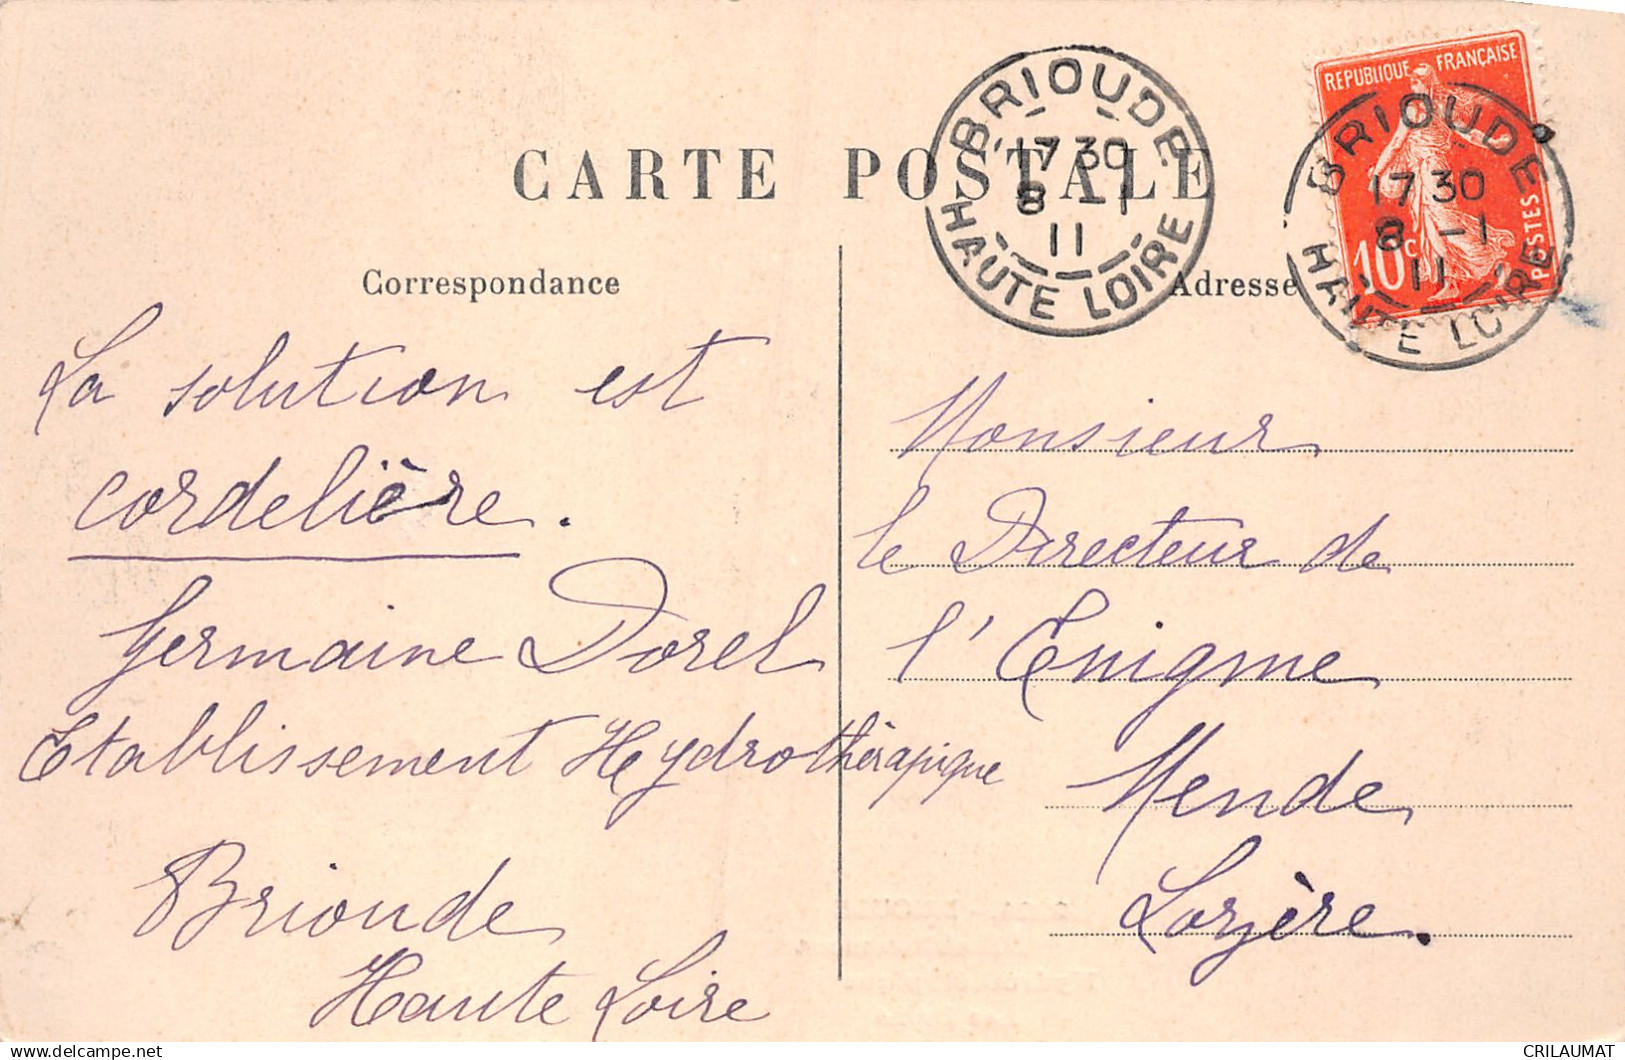 CARTE POSTALE
Correspondance
La solution est
cordelière.
Germaine Dorel
Etablissement Hydrothérapique
Brioude
Haute Loire
BRIOUDE
17 30
8 -1
11
HAUTE LOIRE
REPUBLIQUE FRANÇAISE
10c
POSTES
BRIOUDE
17 30
8 -1
11
HAUTE LOIRE
Adresse
Monsieur
le Directeur de
l'Enigme
Mende
Lozère.
delcampe.net
CRILAUMAT